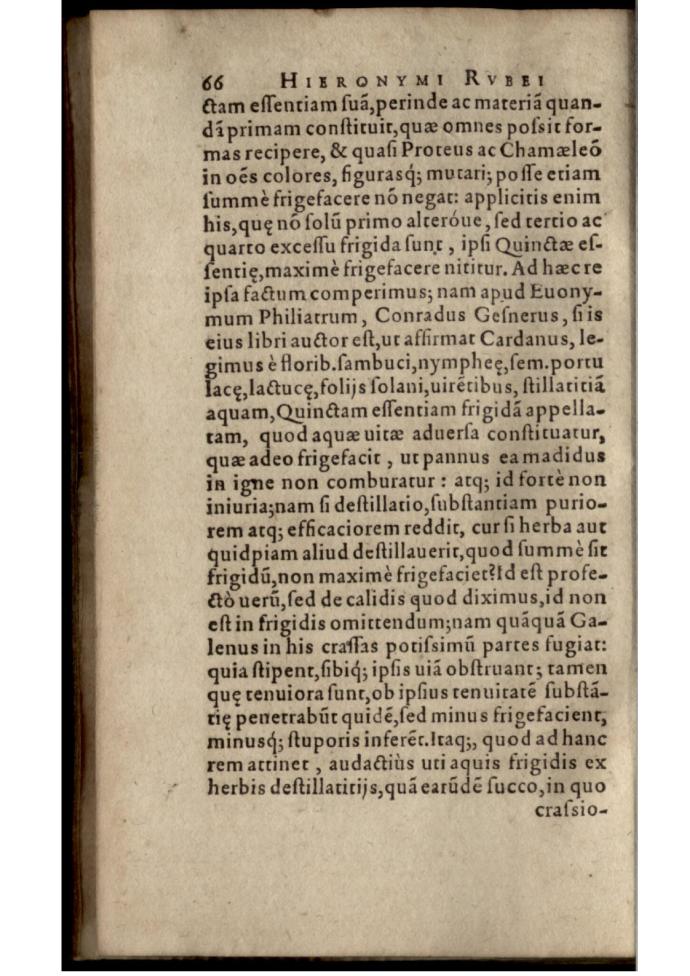 66 HIERONYMI RVBEI
ctam essentiam suã, perinde ac materiã quan-
dã primam constituit, quæ omnes possit for-
mas recipere, & quasi Proteus ac Chamæleõ
in oẽs colores, figurasq́; mutari; posse etiam
summè frigefacere nõ negat: applicitis enim
his, quę nõ solũ primo alteróue, sed tertio ac
quarto excessu frigida sunt, ipsi Quinctæ es-
sentię, maximè frigefacere nititur. Ad hæc re
ipsa factum comperimus; nam apud Euony-
mum Philiatrum, Conradus Gesnerus, si is
eius libri auctor est, ut affirmat Cardanus, le-
gimus è florib. sambuci, nympheę, sem. portu
lacę, lactucę, folijs solani, uirẽtibus, stillatitiã
aquam, Quinctam essentiam frigidã appella-
tam, quod aquæ uitæ aduersa constituatur,
quæ adeo frigefacit, ut pannus ea madidus
in igne non comburatur: atq; id fortè non
iniuria; nam si destillatio, substantiam purio-
rem atq; efficaciorem reddit, cur si herba aut
quidpiam aliud destillauerit, quod summè sit
frigidũ, non maximè frigefaciet? Id est profe-
ctò uerũ, sed de calidis quod diximus, id non
est in frigidis omittendum; nam quãquã Ga-
lenus in his crassas potissimũ partes fugiat:
quia stipent, sibiq́; ipsis uiã obstruant; tamen
quę tenuiora sunt, ob ipsius tenuitatẽ substã-
tię penetrabũt quidẽ, sed minus frigefacient,
minusq́; stuporis inferẽt. Itaq;, quod ad hanc
rem attinet, audactiùs uti aquis frigidis ex
herbis destillatitijs, quã earũdẽ succo, in quo
crassio-